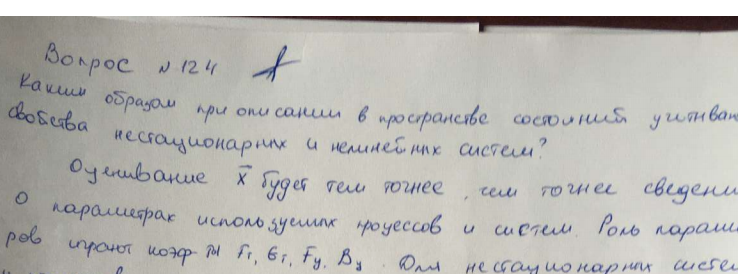 Вопрос №124
Каким образом при описании в пространстве состояний учитыван
свойства нестационарных и нелинейных систем?
Оценивание x̄ будет тем точнее, чем точнее сведени
о параметрах используемых процессов и систем. Роль парам
ров играют коэф-ты Fг, Gг, Fу, Bу. Для нестационарных систем